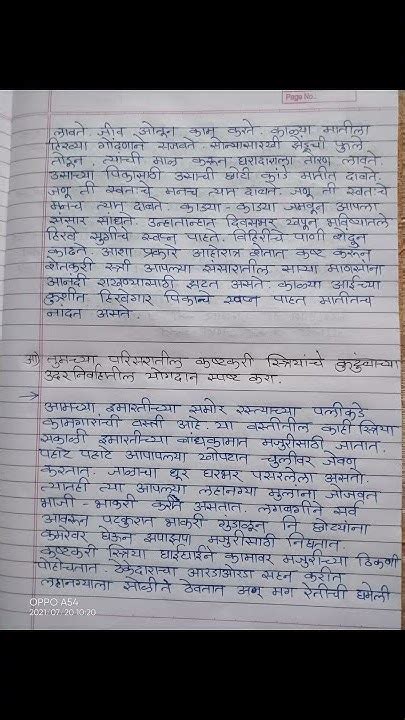 Page No.
लावते. जीव ओतून काम करते. काळ्या मातीला
हिरव्या गोंदणाने सजवते. सोन्यासारखी झेंडूची फुले
तोडून, त्यांची माळ करून घरादाराला तोरण लावते.
उसाच्या पिकासाठी उसाची छोटी कांडे मातीत दाबते.
जणू ती स्वतःचे मनच त्यात दाबते. जणू ती स्वतःचे
मनच त्यात दाबते. काड्या - काड्या जमवून आपला
संसार सांधते. उन्हातान्हात दिवसभर खपून भविष्यातले
हिरवे सुगीचे स्वप्न पाहते. विहिरीचे पाणी शेंदून
काढते. अशा प्रकारे अहोरात्र शेतात कष्ट करून
शेतकरी स्त्री आपल्या संसारातील साऱ्या माणसांना
आनंदी राखण्यासाठी झटत असते. काळ्या आईच्या
कुशीत हिरवेगार पिकाचे स्वप्न पाहत मातीतच
नांदत असते.
अ) तुमच्या परिसरातील कष्टकरी स्त्रियांचे कुटुंबाच्या
उदरनिर्वाहातील योगदान स्पष्ट करा.
→ आमच्या इमारतीच्या समोर रस्त्याच्या पलीकडे
कामगारांची वस्ती आहे. या वस्तीतील काही स्त्रिया
सकाळी इमारतीच्या बांधकामात मजुरीसाठी जातात.
पहाटे पहाटे आपापल्या खोपटात चुलीवर जेवण
करतात. जाळाचा धूर घरभर पसरलेला असतो.
त्यातही त्या आपल्या लहानग्या मुलांना जोजवत
भाजी - भाकरी करीत असतात. लगबगीने सर्व
आवरून फडक्यात भाकरी गुंडाळून नि छोट्यांना
कमरेवर घेऊन झपाझपा मजुरीसाठी निघतात.
कष्टकरी स्त्रिया घाईघाईने कामावर मजुरीच्या ठिकाणी
पोहोचतात. ठेकेदाराचा आरडाओरडा सहन करीत
लहानग्याला झोळीत ठेवतात अन् मग रेतीची घमेली
OPPO A54
2021/07/20 10:20